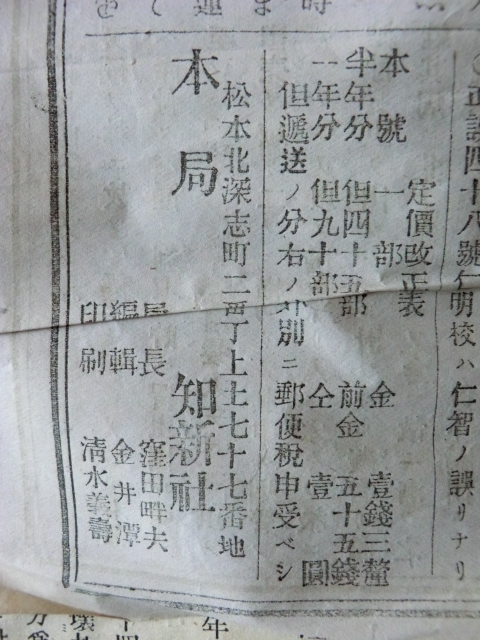 ○正誤四十八號仁明校ハ仁智ノ誤リナリ
定價改正表
本號 一部 金 壹錢三釐
半年分 但四十五部 前金 五十五錢
一年分 但九十部 仝 壹圓
但遞送ノ分右ノ外別ニ郵便税申受ベシ
松本北深志町二番丁上土七十七番地
本局 知新社
局長 窪田畔夫
編輯 金井潭
印刷 清水義壽